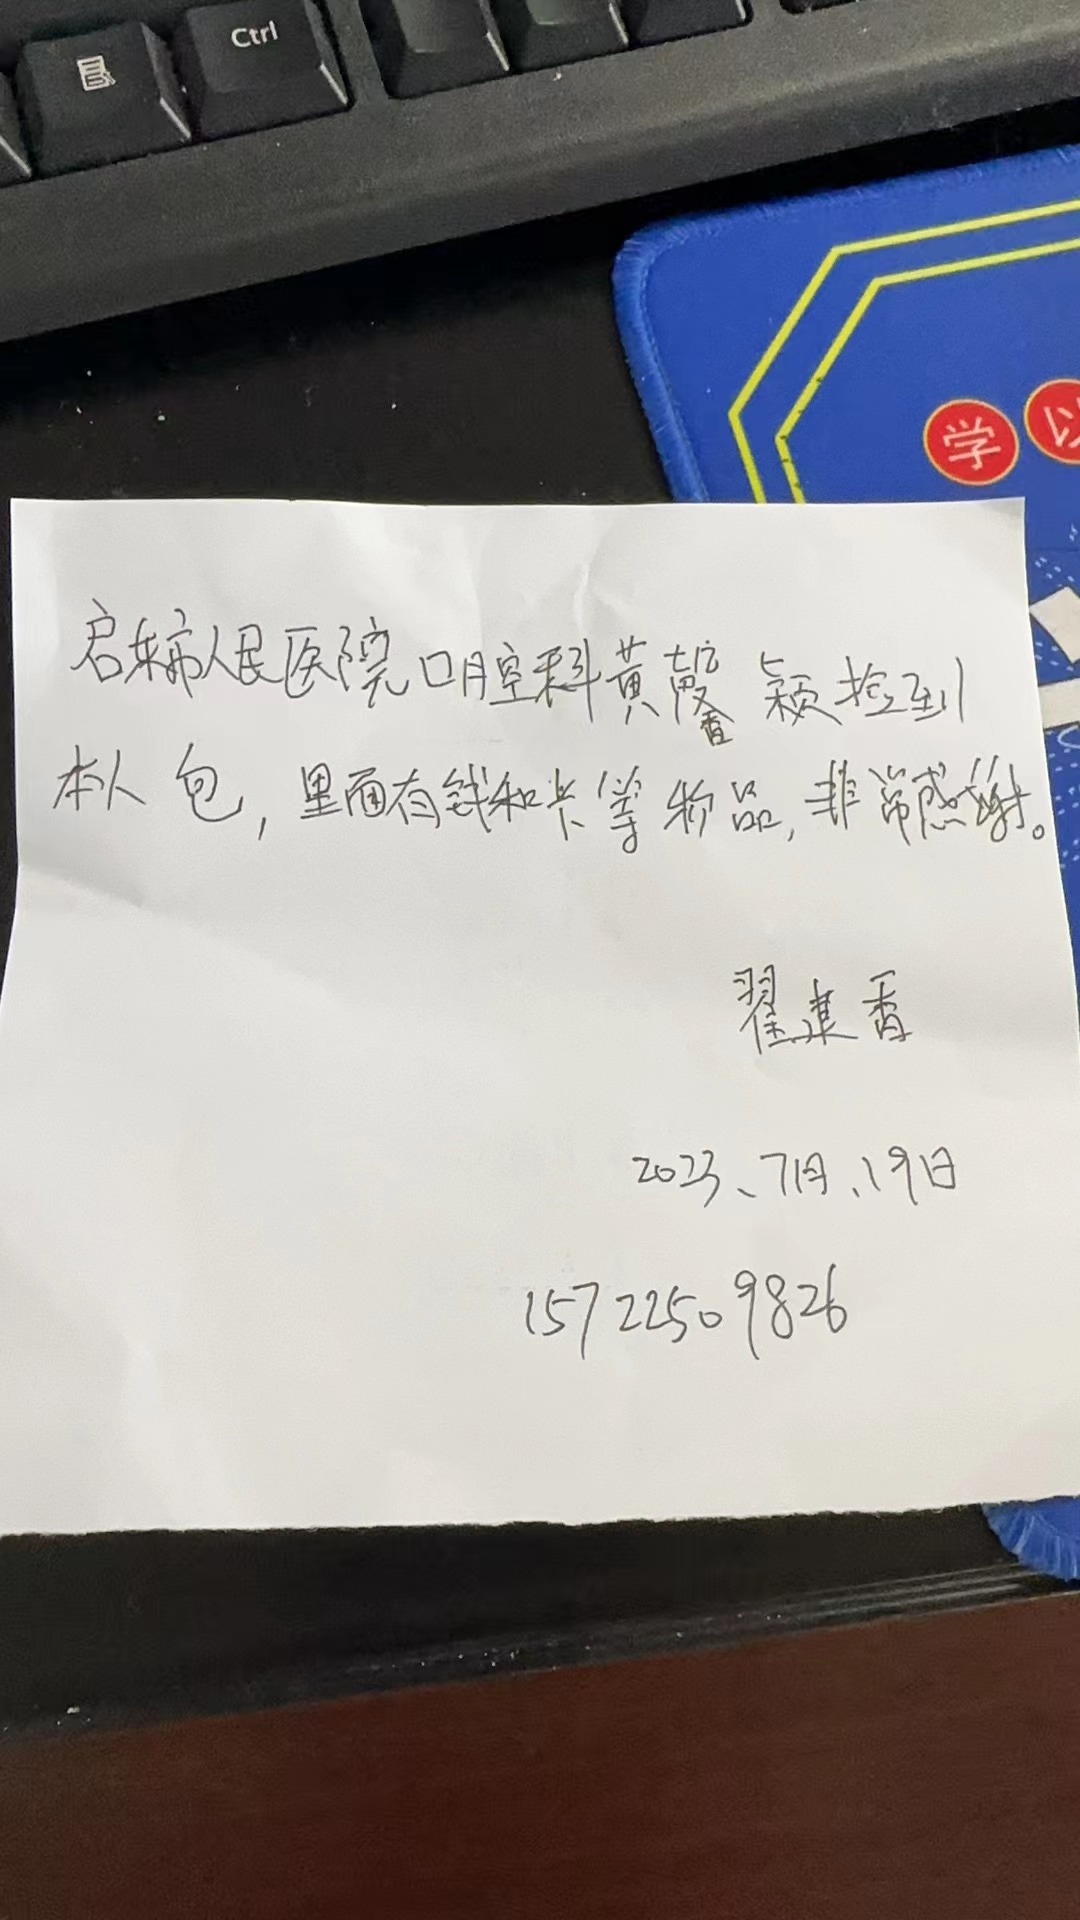 Ctrl
学以
启东市人民医院口腔科黄馨颖捡到
本人包，里面有钱和卡等物品，非常感谢。
翟建香
2023、7月、19日
15722509826